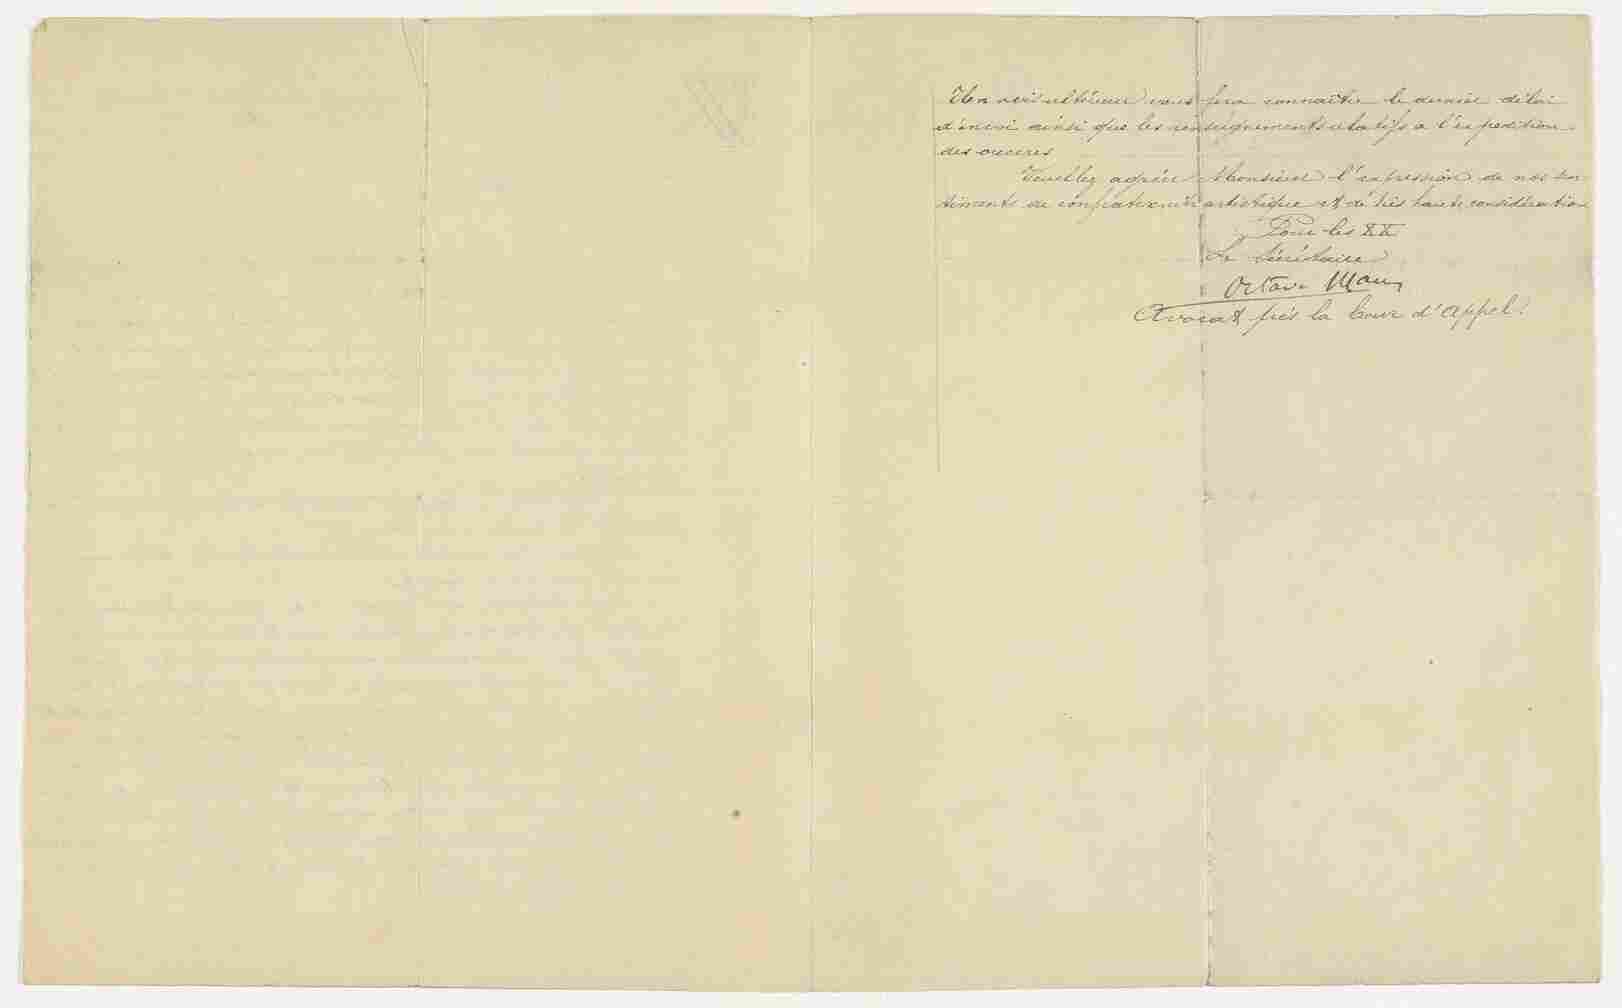 Un avis ultérieur vous fera connaître le dernier délai
d'envoi ainsi que les renseignements relatifs à l'expédition
des œuvres
Veuillez agréer Monsieur l'expression de nos sen
timents de confraternité artistique et de très haute considération
Pour les XX
Le Secrétaire
Octave Maus
Avocat près la Cour d'Appel.